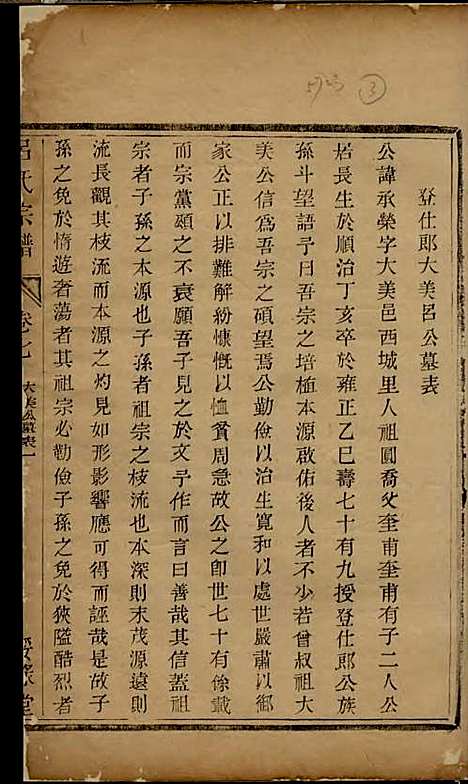 登仕郎大美呂公墓表
公諱承榮字大美邑西城里人祖圓喬父奎甫奎甫有子二人公
居長生於順治丁亥卒於雍正乙巳壽七十有九授登仕郎公族
孫斗望語予曰吾宗之培植本源啟佑後人者不少若曾叔祖大
美公信為吾宗之碩望焉公勤儉以治生寬和以處世嚴肅以御
家公正以排難解紛慷慨以恤貧周急故公之即世七十有餘載
而宗黨頌之不衰願吾子見之於文予作而言曰善哉其信蓋祖
宗者子孫之本源也子孫者祖宗之枝流也本深則末茂源遠則
流長觀其枝流而本源之灼見如形影響應可得而誣哉是故子
孫之免於惰遊奢蕩者其祖宗必勤儉子孫之免於狹隘酷烈者
呂氏宗譜
卷之七
大美公墓表
一
堂
3